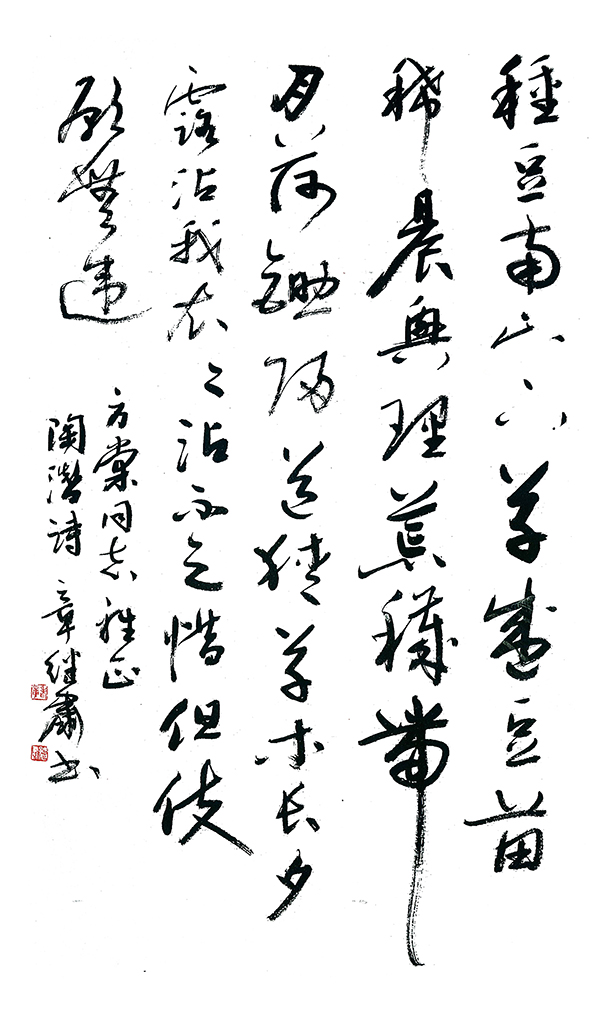 種豆南山下草盛豆苗
稀晨興理荒穢帶
月荷鋤歸道狹草木長夕
露沾我衣〻沾不足惜但使
願無違
方棠同志雅正
陶潛詩 章继肅书